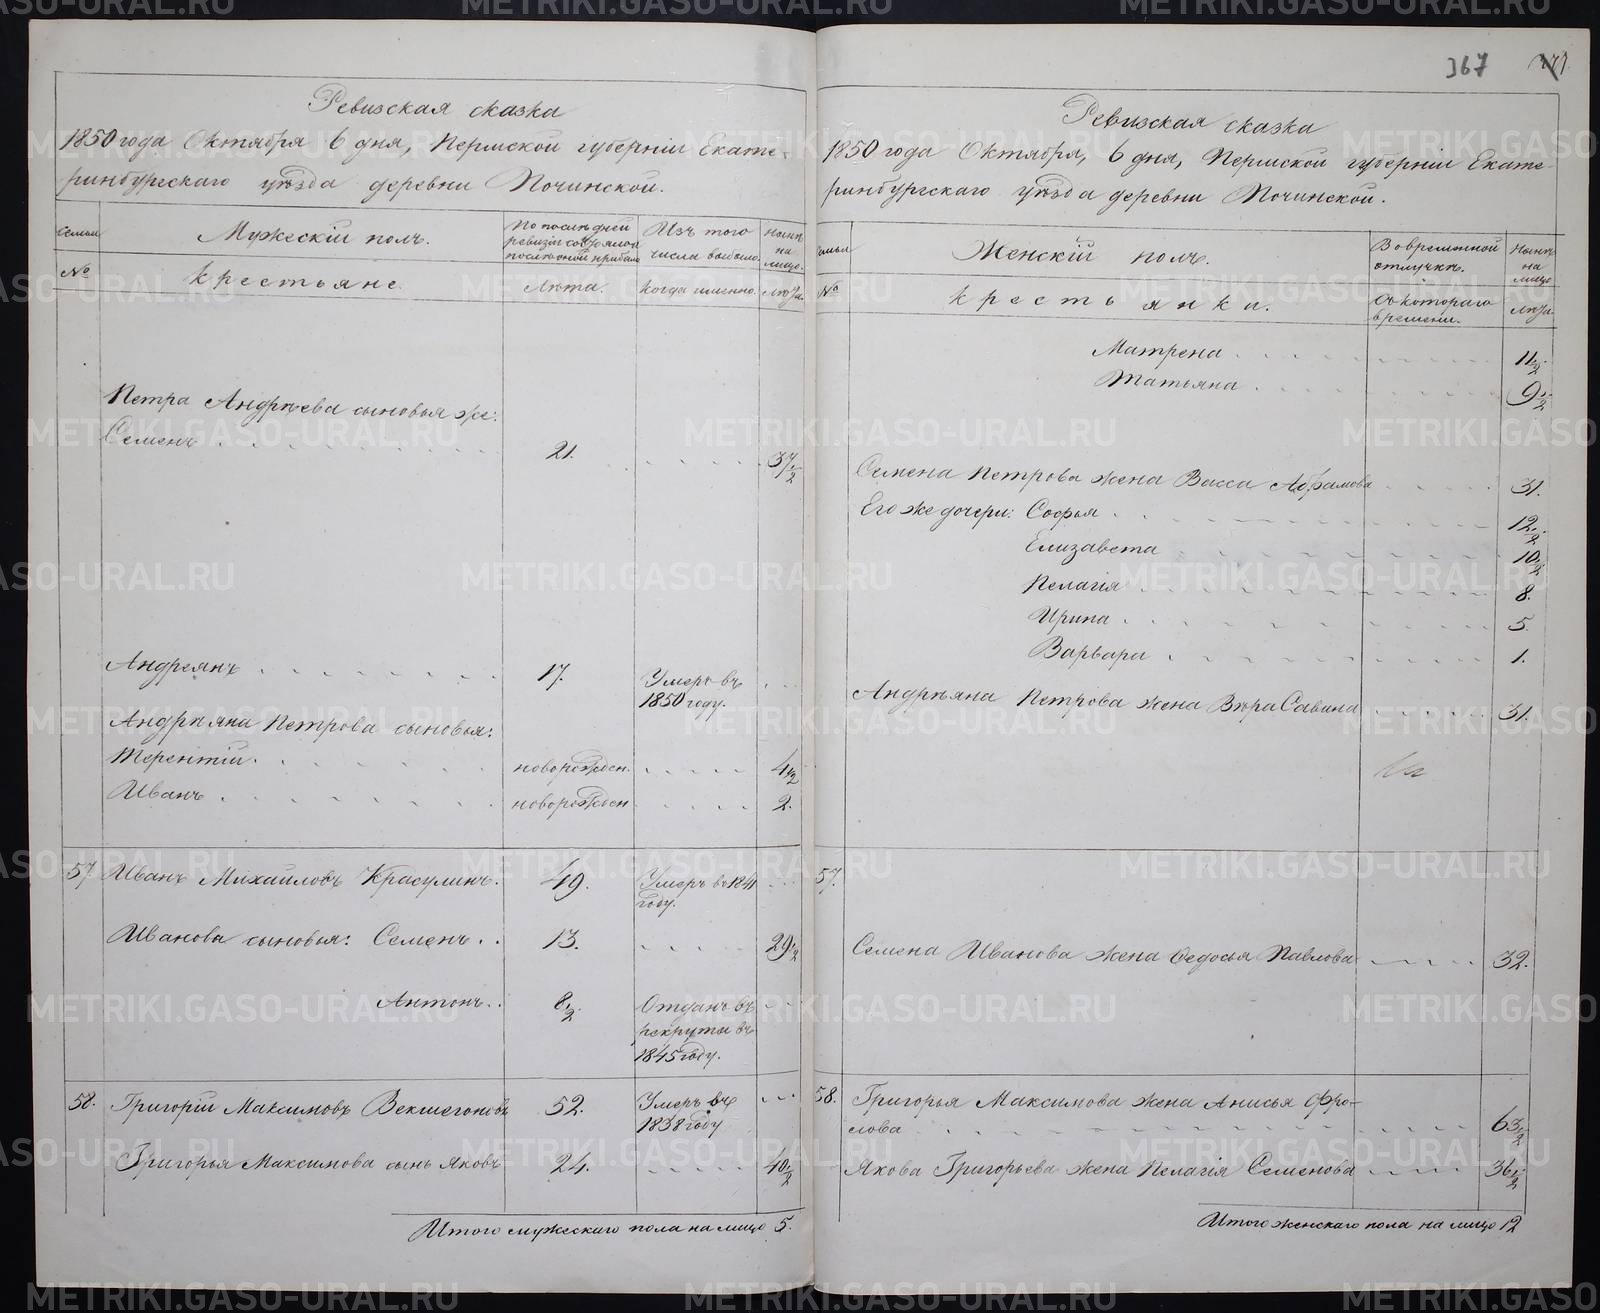 Ревизская сказка
1850 года Октября 6 дня, Пермской губерніи Екате-
ринбургскаго уѣзда деревни Починской.
Семьи
Мужескій полъ.
По послѣдней
ревизіи состояло и
послѣ оной прибыло
Изъ того
числа выбыло.
Нынѣ
на
лицо.
№
крестьяне.
Лѣта.
Когда именно.
Лѣта.
Петра Андрѣева сыновья же:
Семенъ
21.
37 1/2
Андреянъ
17.
Умеръ въ
1850 году.
Андрѣяна Петрова сыновья:
Терентій.
новорожден.
4 1/2
Иванъ
новорожден
2.
57
Иванъ Михайловъ Красулинъ.
49.
Умеръ въ 1841
году.
Иванова сыновья: Семенъ
13.
29 1/2
Антонъ
8 1/2
Отданъ въ
рекруты въ
1845 году.
58.
Григорій Максимовъ Векшегоновъ
52.
Умеръ въ
1838 году
Григорья Максимова сынъ Яковъ
24.
40 1/2
Итого мужескаго пола на лицо 5.
367
Ревизская сказка
1850 года Октября, 6 дня, Пермской губерніи Екате-
ринбургскаго уѣзда деревни Починской.
Семьи
Женскій полъ.
Во временной
отлучкѣ.
Нынѣ
на
лицо
№
крестьянки.
Съ котораго
времени.
Лѣта.
Матрена
11 1/2
Татьяна
9 1/2
Семена Петрова жена Васса Абрамова
31.
Его же дочери: Софья
12 1/2
Елизавета
10 1/2
Пелагія
8.
Ирина
5.
Варвара
1.
Андрѣяна Петрова жена Вѣра Савина
31.
57.
Семена Иванова жена Ѳедосья Павлова
32.
58.
Григорья Максимова жена Анисья Фро-
лова
63 1/2
Якова Григорьева жена Пелагія Семенова
36 1/2
Итого женскаго пола на лицо 12
METRIKI.GASO-URAL.RU